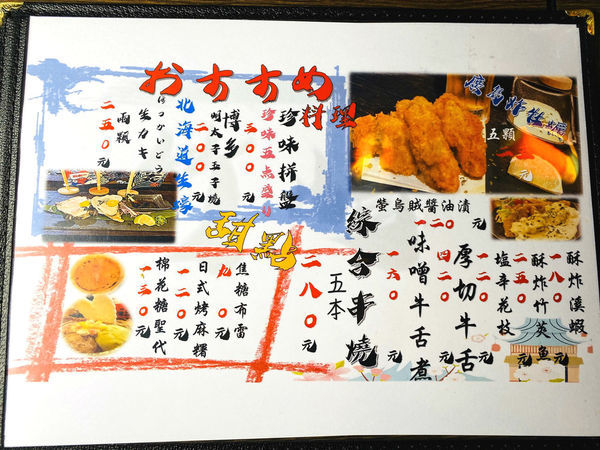 おすすめ
料理
廣島炸牡蠣
五顆
元
珍味拼盤
珍味五点盛り
三〇〇元
博多
明太子玉子燒
二〇〇元
北海道生蠔
ほっかいどう
生カキ
兩顆
二五〇元
螢烏賊醬油漬
一二〇元
酥炸溪蝦
一八〇元
酥炸竹筴魚
二五〇元
塩辛花枝
一二〇元
厚切牛舌
四二〇元
味噌牛舌煮
一六〇元
綜合串燒
五本
二八〇元
焦糖布雷
九〇元
日式烤麻糬
一二〇元
棉花糖聖代
一三〇元